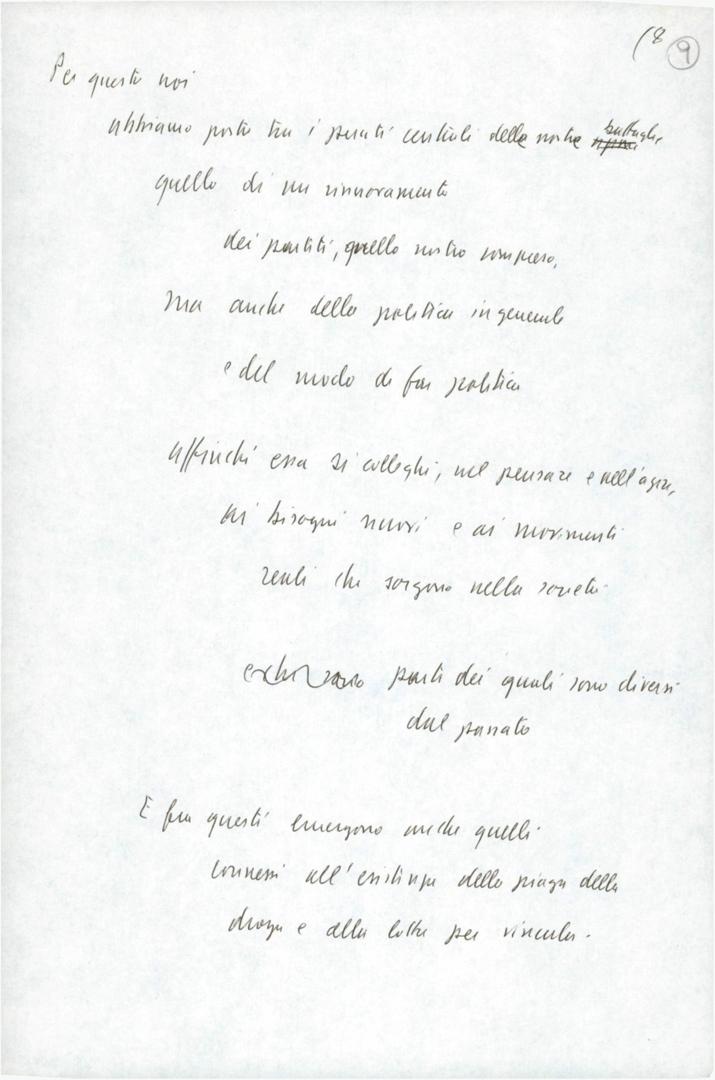 (8 9
Per questo noi
abbiamo posto tra i punti centrali della nostra battaglia
quello di un rinnovamento
dei partiti, quello nostro compreso,
ma anche della politica in generale
e del modo di far politica
affinché essa si colleghi, nel pensare e nell'agire,
ai bisogni nuovi e ai movimenti
reali che sorgono nella società
parti dei quali sono diversi
dal passato
E fra questi emergono anche quelli
connessi all'esistenza della piaga della
droga e alla lotta per vincerla.